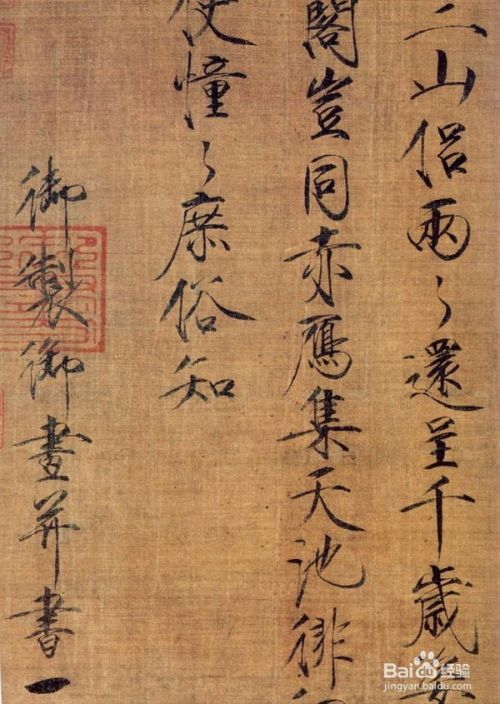 三山侶兩〻還呈千歲姿
閣豈同赤鴈集天池徘
使憧〻庶俗知
御製御畫并書一
Baidu经验
jingyan.baidu.com